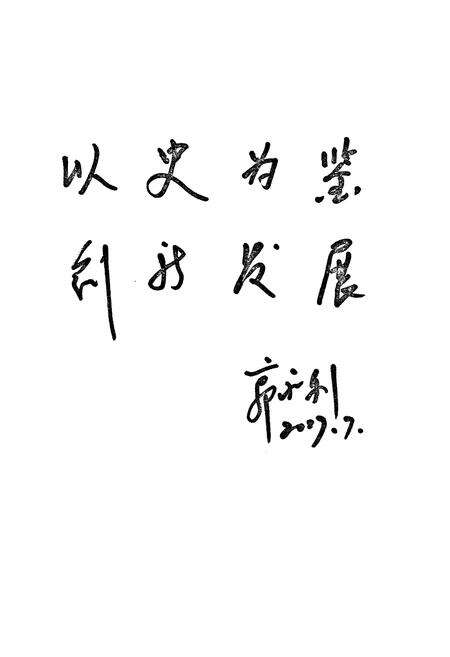 以史为鉴
创新发展
郭永利
2007.7.